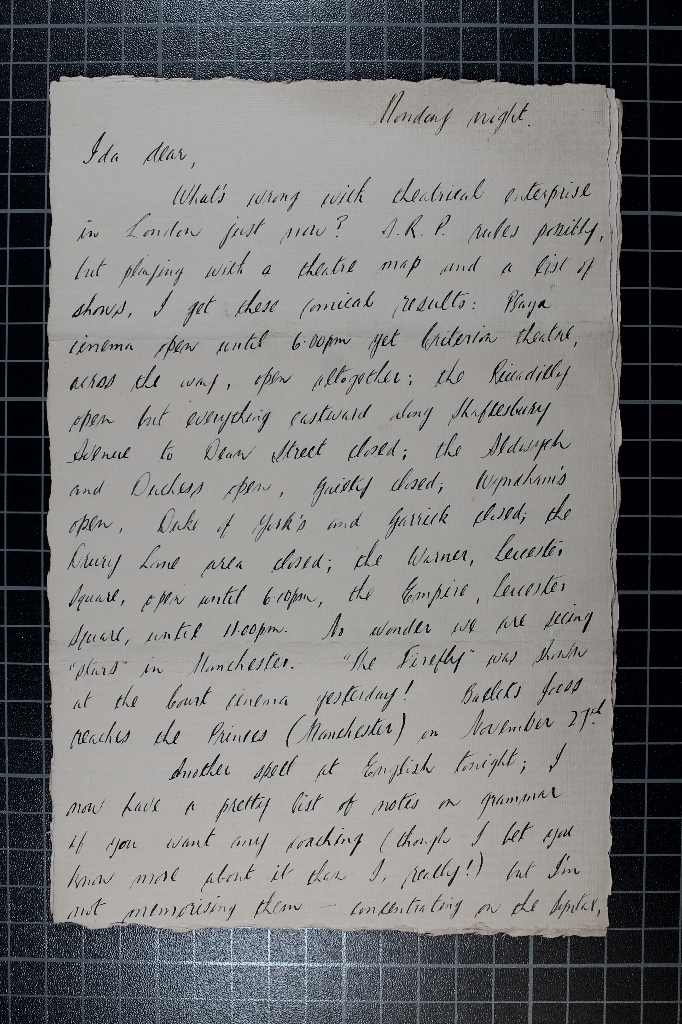 Monday night.
Ida dear,
What's wrong with theatrical enterprise
in London just now? A.R.P. rules possibly,
but playing with a theatre map and a list of
shows, I get these comical results: Plaza
cinema open until 6.00pm yet Criterion theatre,
across the way, open altogether; the Piccadilly
open but everything eastward along Shaftesbury
Avenue to Dean Street closed; the Aldwych
and Duchess open, Gaiety closed; Wyndham's
open, Duke of York's and Garrick closed; the
Drury Lane area closed; the Warner, Leicester
Square, open until 6.00pm, the Empire, Leicester
Square, until 11.00pm. No wonder we are seeing
"stars" in Manchester. "The Firefly" was shown
at the Court cinema yesterday! Ballets Jooss
reaches the Princes (Manchester) on November 27th
Another spell at English tonight; I
now have a pretty list of notes on grammar
if you want any coaching (though I bet you
know more about it than I, really!) but I'm
not memorising them – concentrating on the syntax,